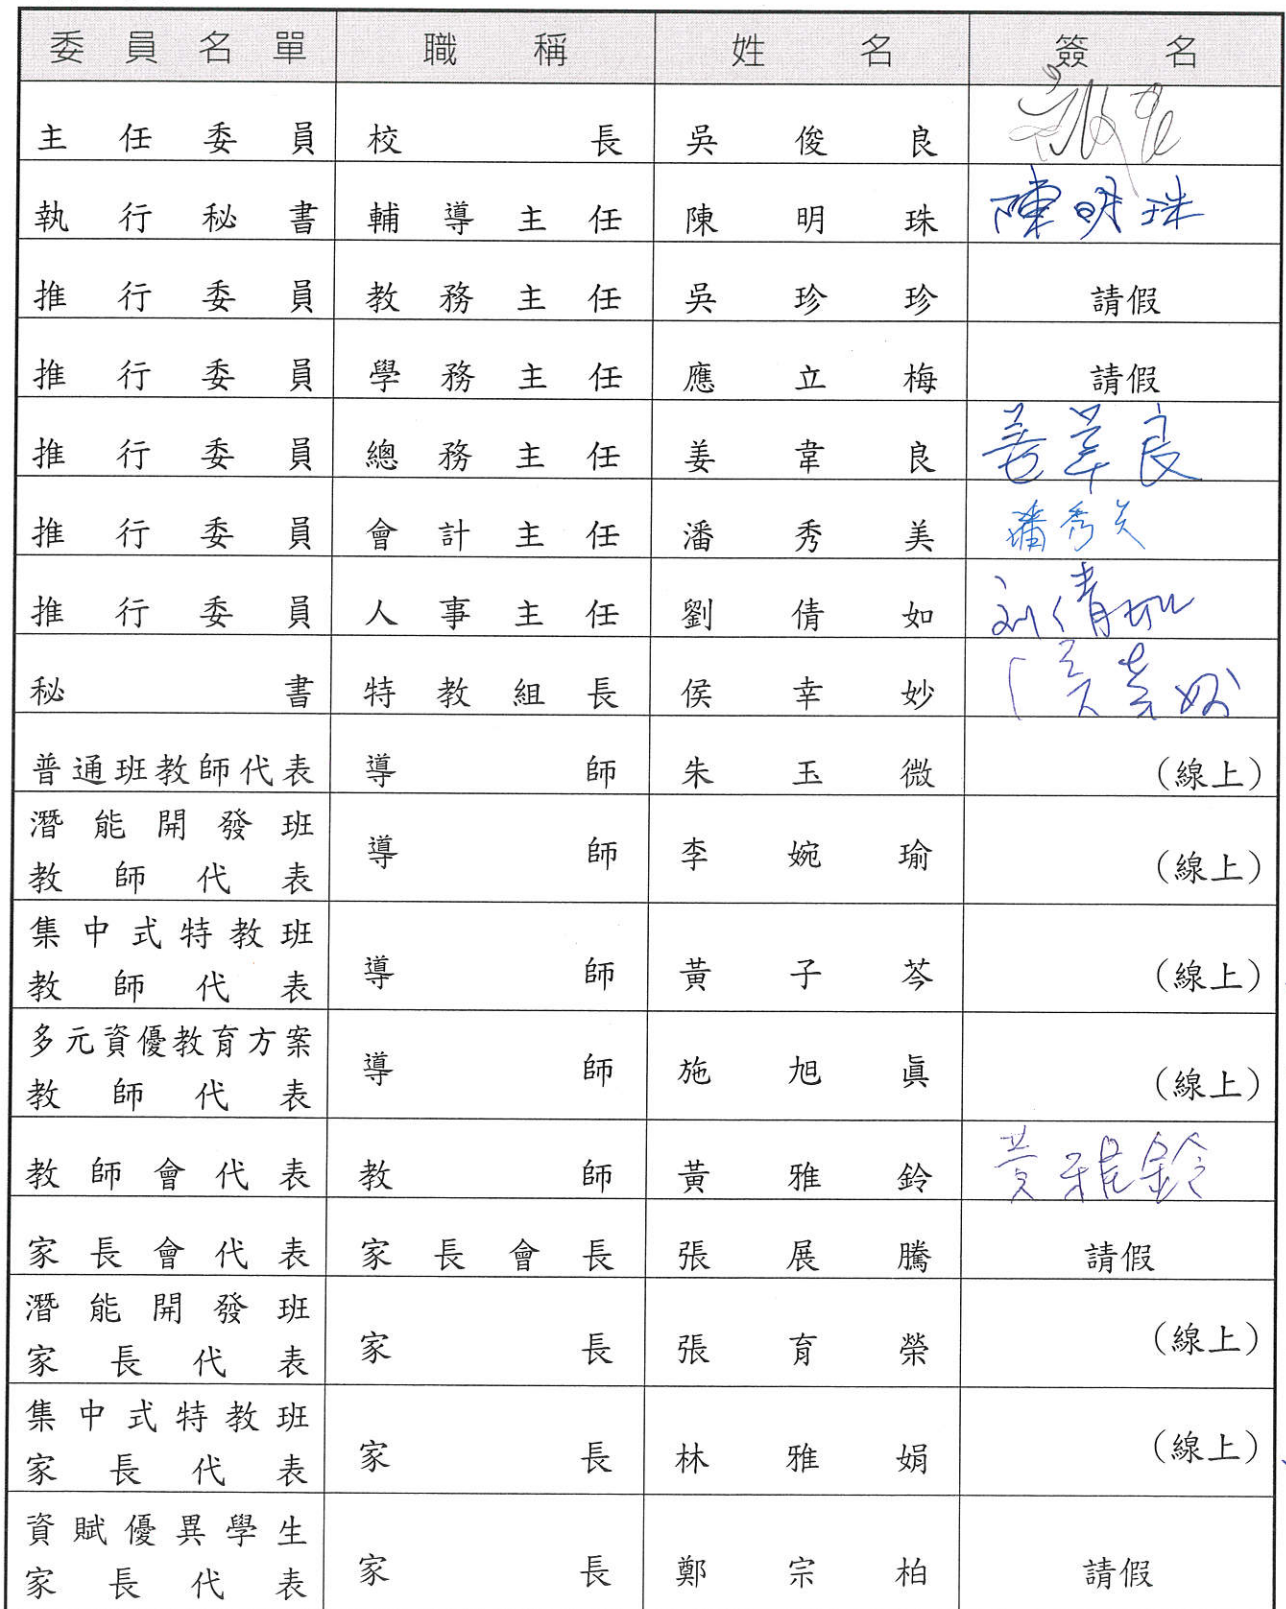 委員名單 職稱 姓名 簽名
主任委員 校長 吳俊良
執行秘書 輔導主任 陳明珠 陳明珠
推行委員 教務主任 吳珍珍 請假
推行委員 學務主任 應立梅 請假
推行委員 總務主任 姜韋良 姜韋良
推行委員 會計主任 潘秀美 潘秀美
推行委員 人事主任 劉倩如 刘倩如
秘書 特教組長 侯幸妙 侯幸妙
普通班教師代表 導師 朱玉微 (線上)
潛能開發班
教師代表 導師 李婉瑜 (線上)
集中式特教班
教師代表 導師 黃子芩 (線上)
多元資優教育方案
教師代表 導師 施旭眞 (線上)
教師會代表 教師 黃雅鈴 黃雅鈴
家長會代表 家長會長 張展騰 請假
潛能開發班
家長代表 家長 張育榮 (線上)
集中式特教班
家長代表 家長 林雅娟 (線上)
資賦優異學生
家長代表 家長 鄭宗柏 請假